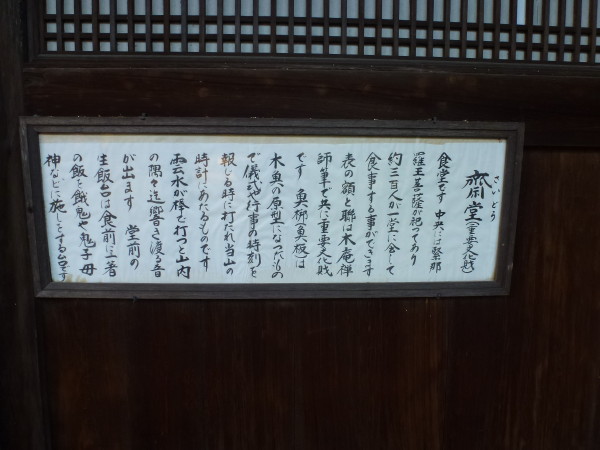 さいどう
齋堂(重要文化財)
食堂です 中央には緊那
羅王菩薩が祀つてあり
約三百人が一堂に会して
食事する事ができます
表の額と聯は木庵禅
師筆で共に重要文化財
です 魚梛(魚板)は
木魚の原型になつたもの
で儀式や行事の時刻を
報じる時に打たれ当山の
時計にあたるものです
雲水が棒で打つと山内
の隅々迄響き渡る音
が出ます 堂前の
生飯台は食前に二音
の飯を餓鬼や鬼子母
神などに施しをする台です